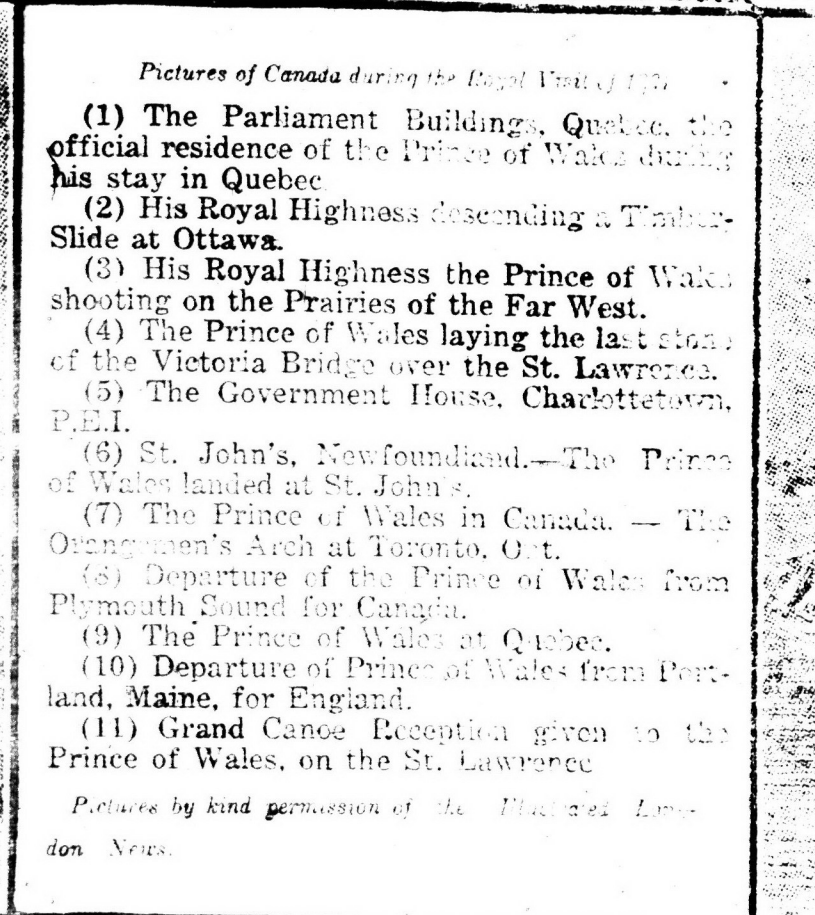 Pictures of Canada during the Royal Visit of
(1) The Parliament Buildings, Quebec, the
official residence of the Prince of Wales during
his stay in Quebec
(2) His Royal Highness descending a Timber-
Slide at Ottawa.
(3) His Royal Highness the Prince of Wales
shooting on the Prairies of the Far West.
(4) The Prince of Wales laying the last stone
of the Victoria Bridge over the St. Lawrence.
(5) The Government House, Charlottetown,
P.E.I.
(6) St. John's, Newfoundland.—The Prince
of Wales landed at St. John's.
(7) The Prince of Wales in Canada. — The
Orangemen's Arch at Toronto, Ont.
(8) Departure of the Prince of Wales from
Plymouth Sound for Canada.
(9) The Prince of Wales at Quebec.
(10) Departure of Prince of Wales from Port-
land, Maine, for England.
(11) Grand Canoe Reception given to the
Prince of Wales, on the St. Lawrence
Pictures by kind permission of the Illustrated Lon-
don News.